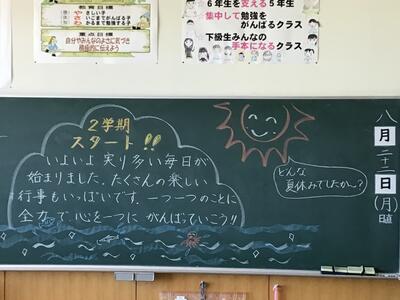 教育目標
やさしい子
いこまでがんばる子
かるまで勉強する子
重点目標
自分やみんなのよさに気づき
積極的に伝えよう
6年生を支える5年生
集中して勉強を
がんばるクラス
下級生みんなの
手本になるクラス
2学期
スタート!!
いよいよ実り多い毎日が
始まりました。たくさんの楽しい
行事もいっぱいです。一つ一つのことに
全力で心を一つにがんばっていこう!!
どんな
夏休みでしたか〜?
八月二十二日(月)
日直